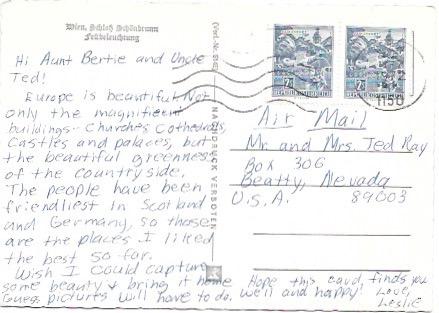 Wien, Schloß Schönbrunn
Festbeleuchtung
Hi Aunt Bertie and Uncle
Ted!
Europe is beautiful. Not
only the magnificent
buildings - Churches Cathedrals,
Castles and palaces, but
the beautiful greenness
of the countryside.
The people have been
friendliest in Scotland
and Germany, so those
are the places I liked
the best so far.
Wish I could capture
some beauty & bring it home
Guess pictures will have to do.
Hope this card finds you
well and happy! Love,
Leslie
NACHDRUCK VERBOTEN
REPUBLIK ÖSTERREICH
REPUBLIK ÖSTERREICH
1150
Air Mail
Mr. and Mrs. Ted Ray
Box 306
Beatty, Nevada
U.S.A. 89003